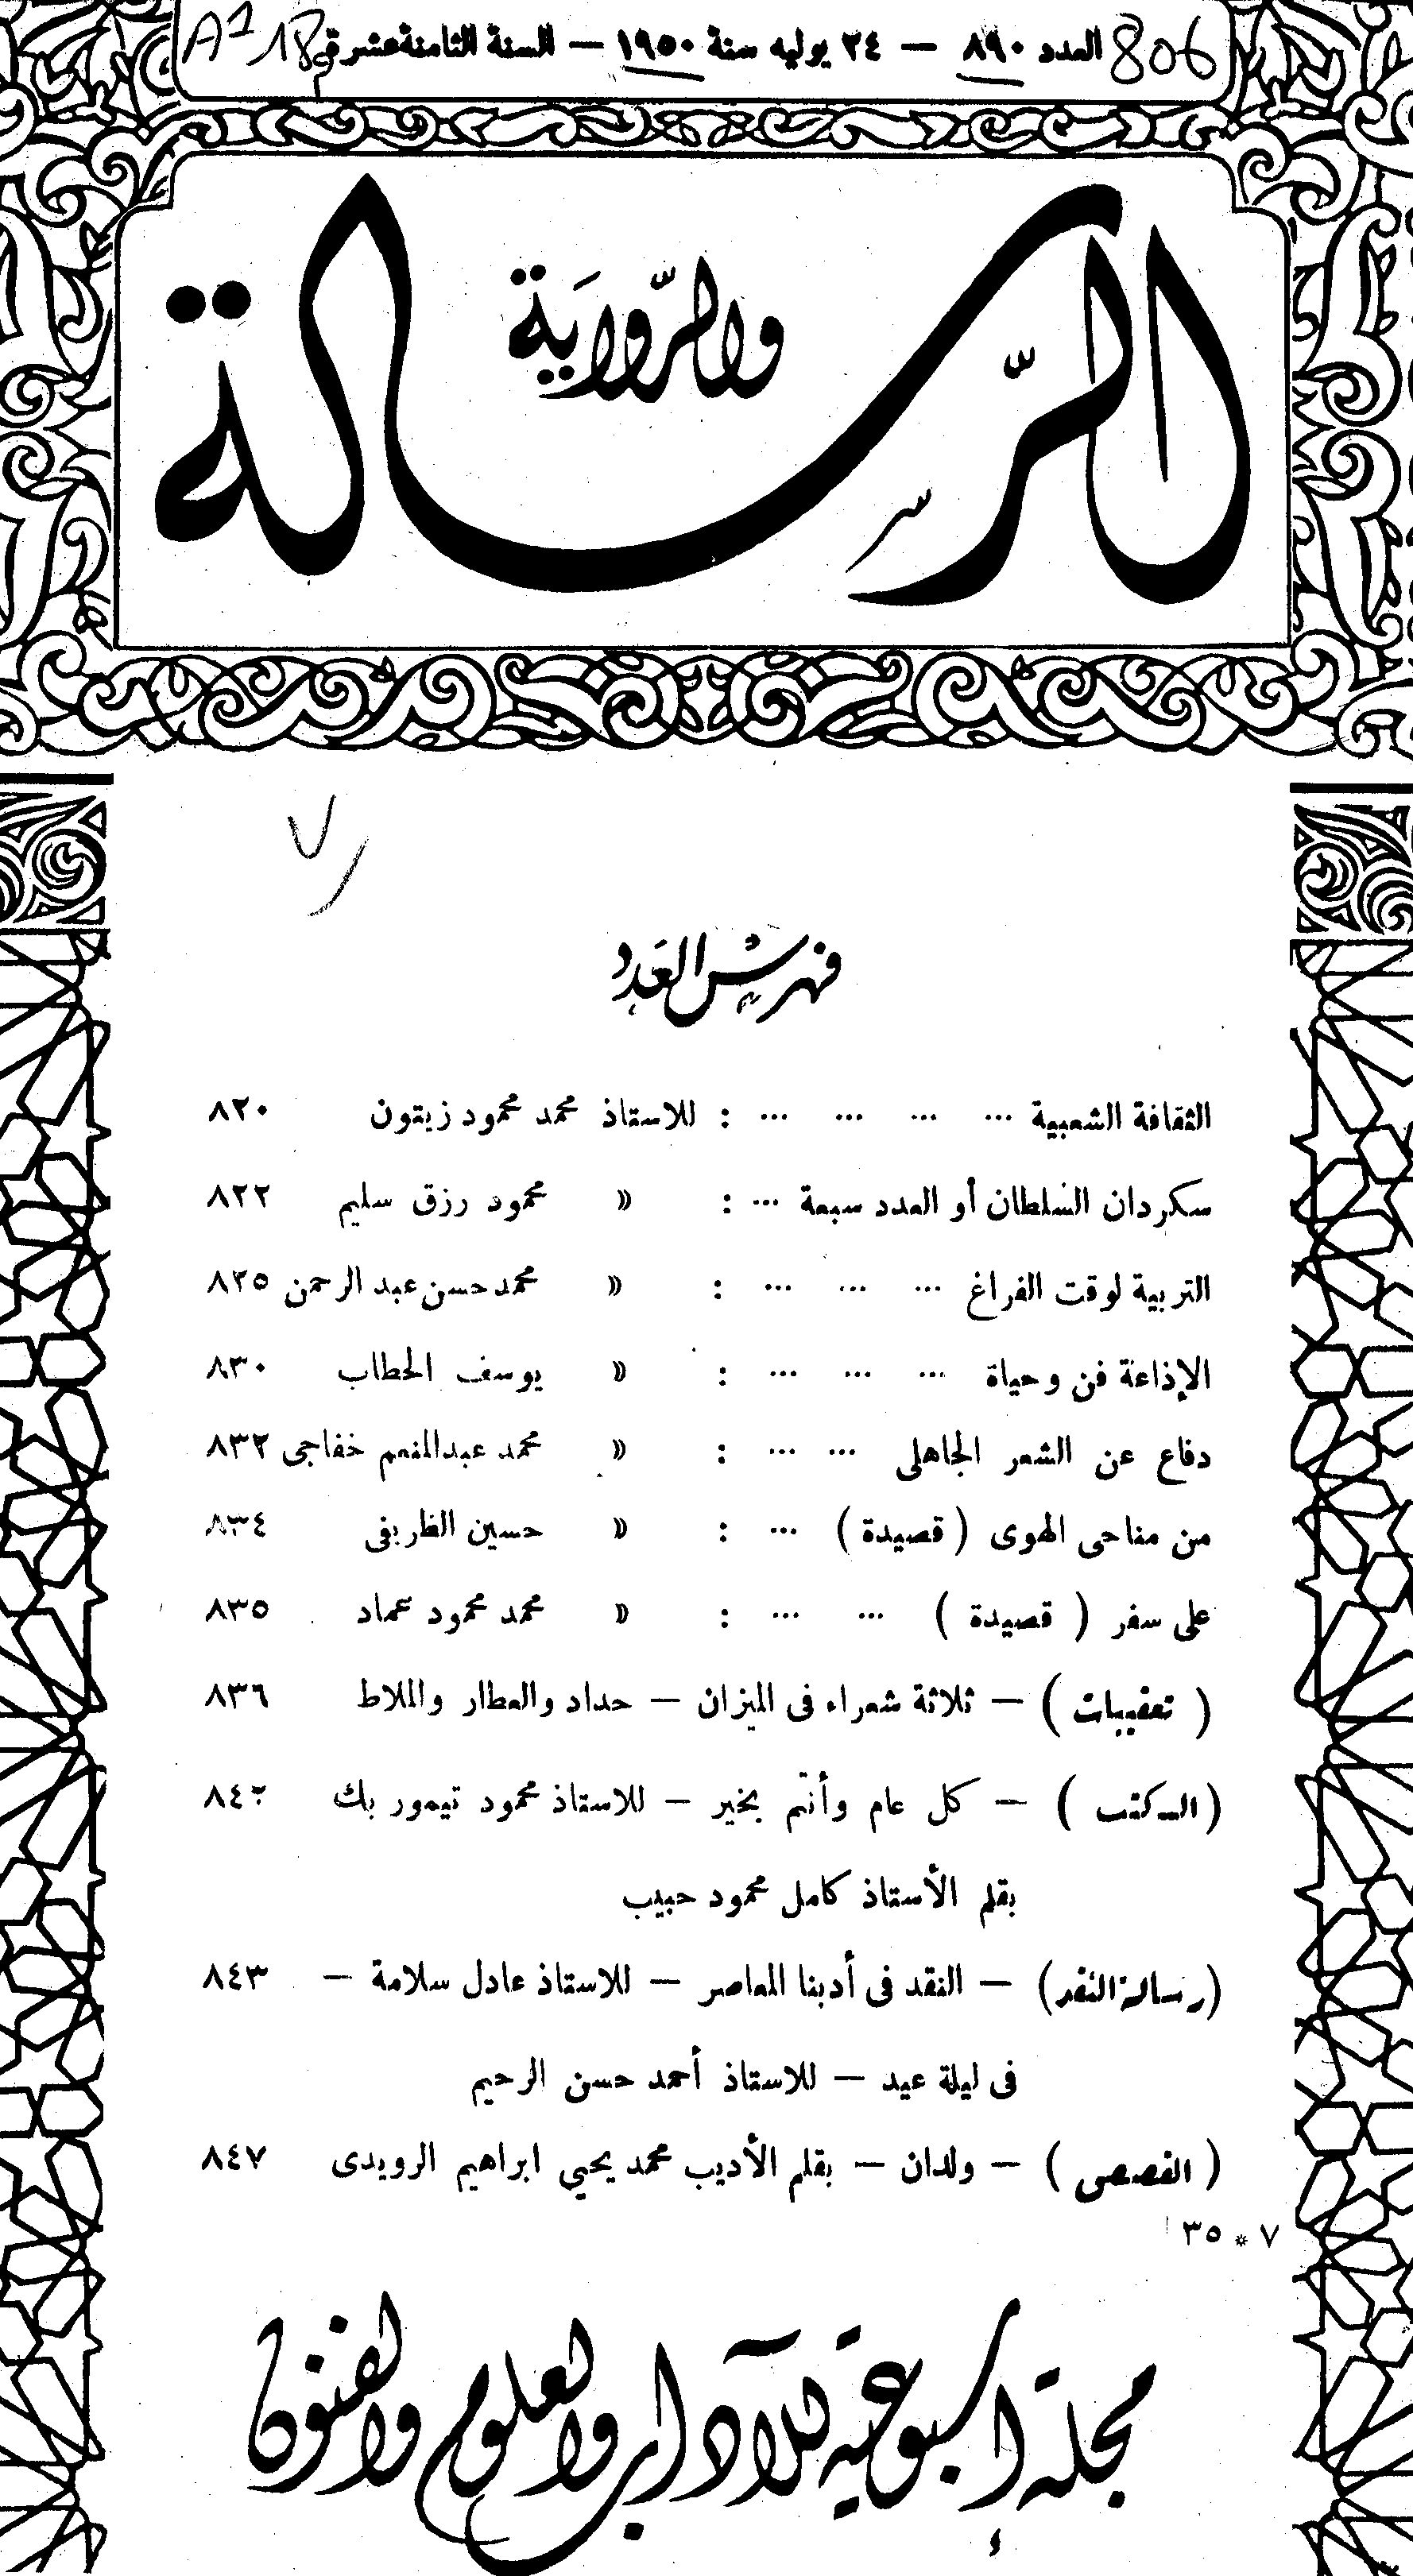 806 العدد ٨٩٠ — ٢٤ يوليه سنة ١٩٥٠ — السنة الثامنة عشرة
الرسالة
والرواية
فهرس العدد
الثقافة الشعبية ... ... ... ... : للاستاذ محمد محمود زيتون ٨٢٠
سكردان السلطان أو العدد سبعة ... : » محمود رزق سليم ٨٢٢
التربية لوقت الفراغ ... ... ... : » محمد حسن عبد الرحمن ٨٢٥
الإذاعة فن وحياة ... ... ... : » يوسف الحطاب ٨٣٠
دفاع عن الشعر الجاهلى ... ... : » محمد عبد المنعم خفاجى ٨٣٢
من مناحى الهوى ( قصيدة ) ... : » حسين الظريفى ٨٣٤
على سفر ( قصيدة ) ... ... : » محمد محمود عماد ٨٣٥
( تعقيبات ) — ثلاثة شعراء فى الميزان — حداد والعطار والملاط ٨٣٦
( الكتب ) — كل عام وأنتم بخير — للاستاذ محمود تيمور بك ٨٤٢
بقلم الأستاذ كامل محمود حبيب
(رسالة النقد) — النقد فى أدبنا المعاصر — للاستاذ عادل سلامة — ٨٤٣
فى ليلة عيد — للاستاذ أحمد حسن الرحيم
( القصص ) — ولدان — بقلم الأديب محمد يحيي ابراهيم الرويدى ٨٤٧
٧ * ٣٥
مجلة أسبوعية للآداب والعلوم والفنون